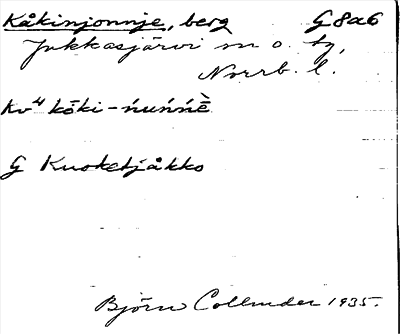 Kåkinjonnje, berg G8a6
Jukkasjärvi sn o. tg,
Norrb. l.
Kv⁴ kōki-ńuńńè
G Kuoketjåkko
Björn Collinder 1935.